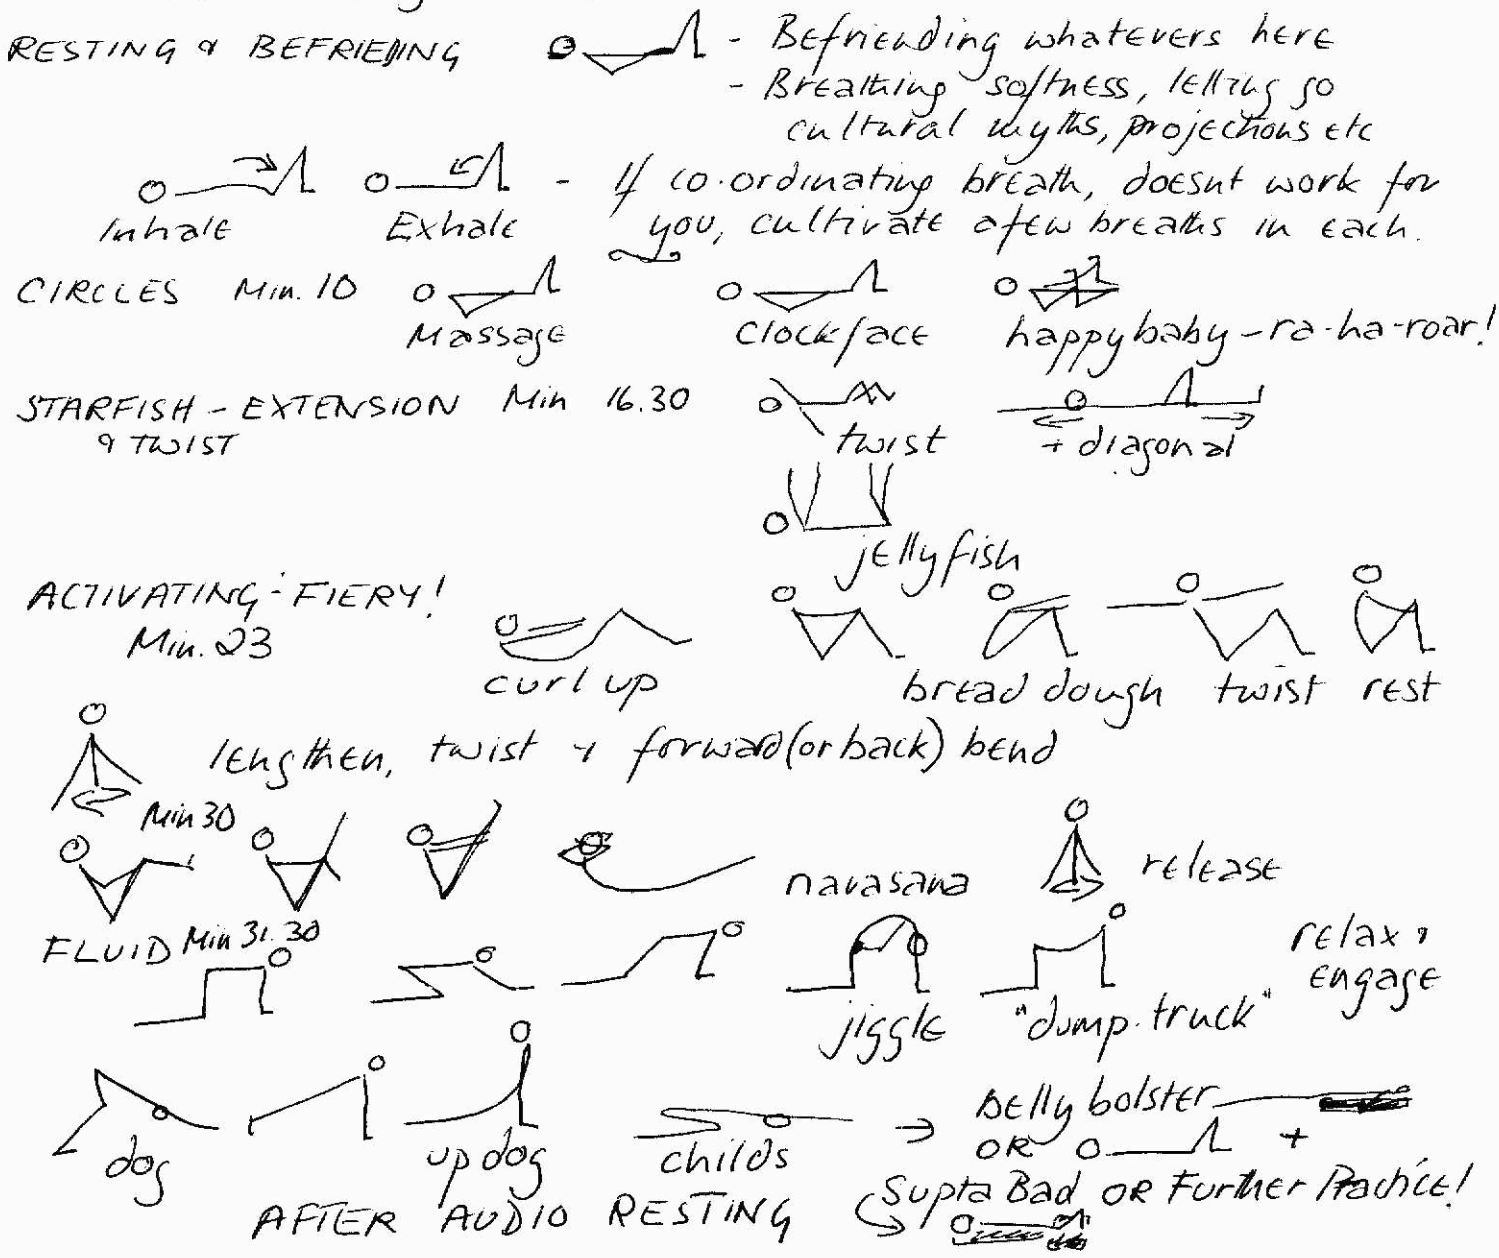 RESTING & BEFRIENDING - Befriending whatevers here
- Breathing softness, letting go
cultural myths, projections etc
Inhale Exhale - If co.ordinating breath, doesnt work for
you, cultivate a few breaths in each.
CIRCLES Min. 10 Massage Clockface happy baby - ra-ha-roar!
STARFISH - EXTENSION Min 16.30
& TWIST twist + diagonal
jellyfish
ACTIVATING - FIERY!
Min. 23
curl up bread dough twist rest
lengthen, twist & forward (or back) bend
Min 30
navasana release
FLUID Min 31.30
relax &
engage
jiggle "dump.truck"
belly bolster
dog up dog childs → OR +
Supta Bad OR Further Practice!
AFTER AUDIO RESTING